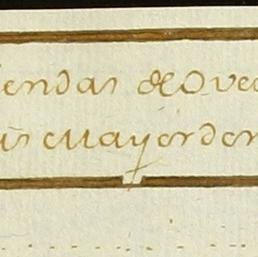 iendas de Ovec
as e Mayordon